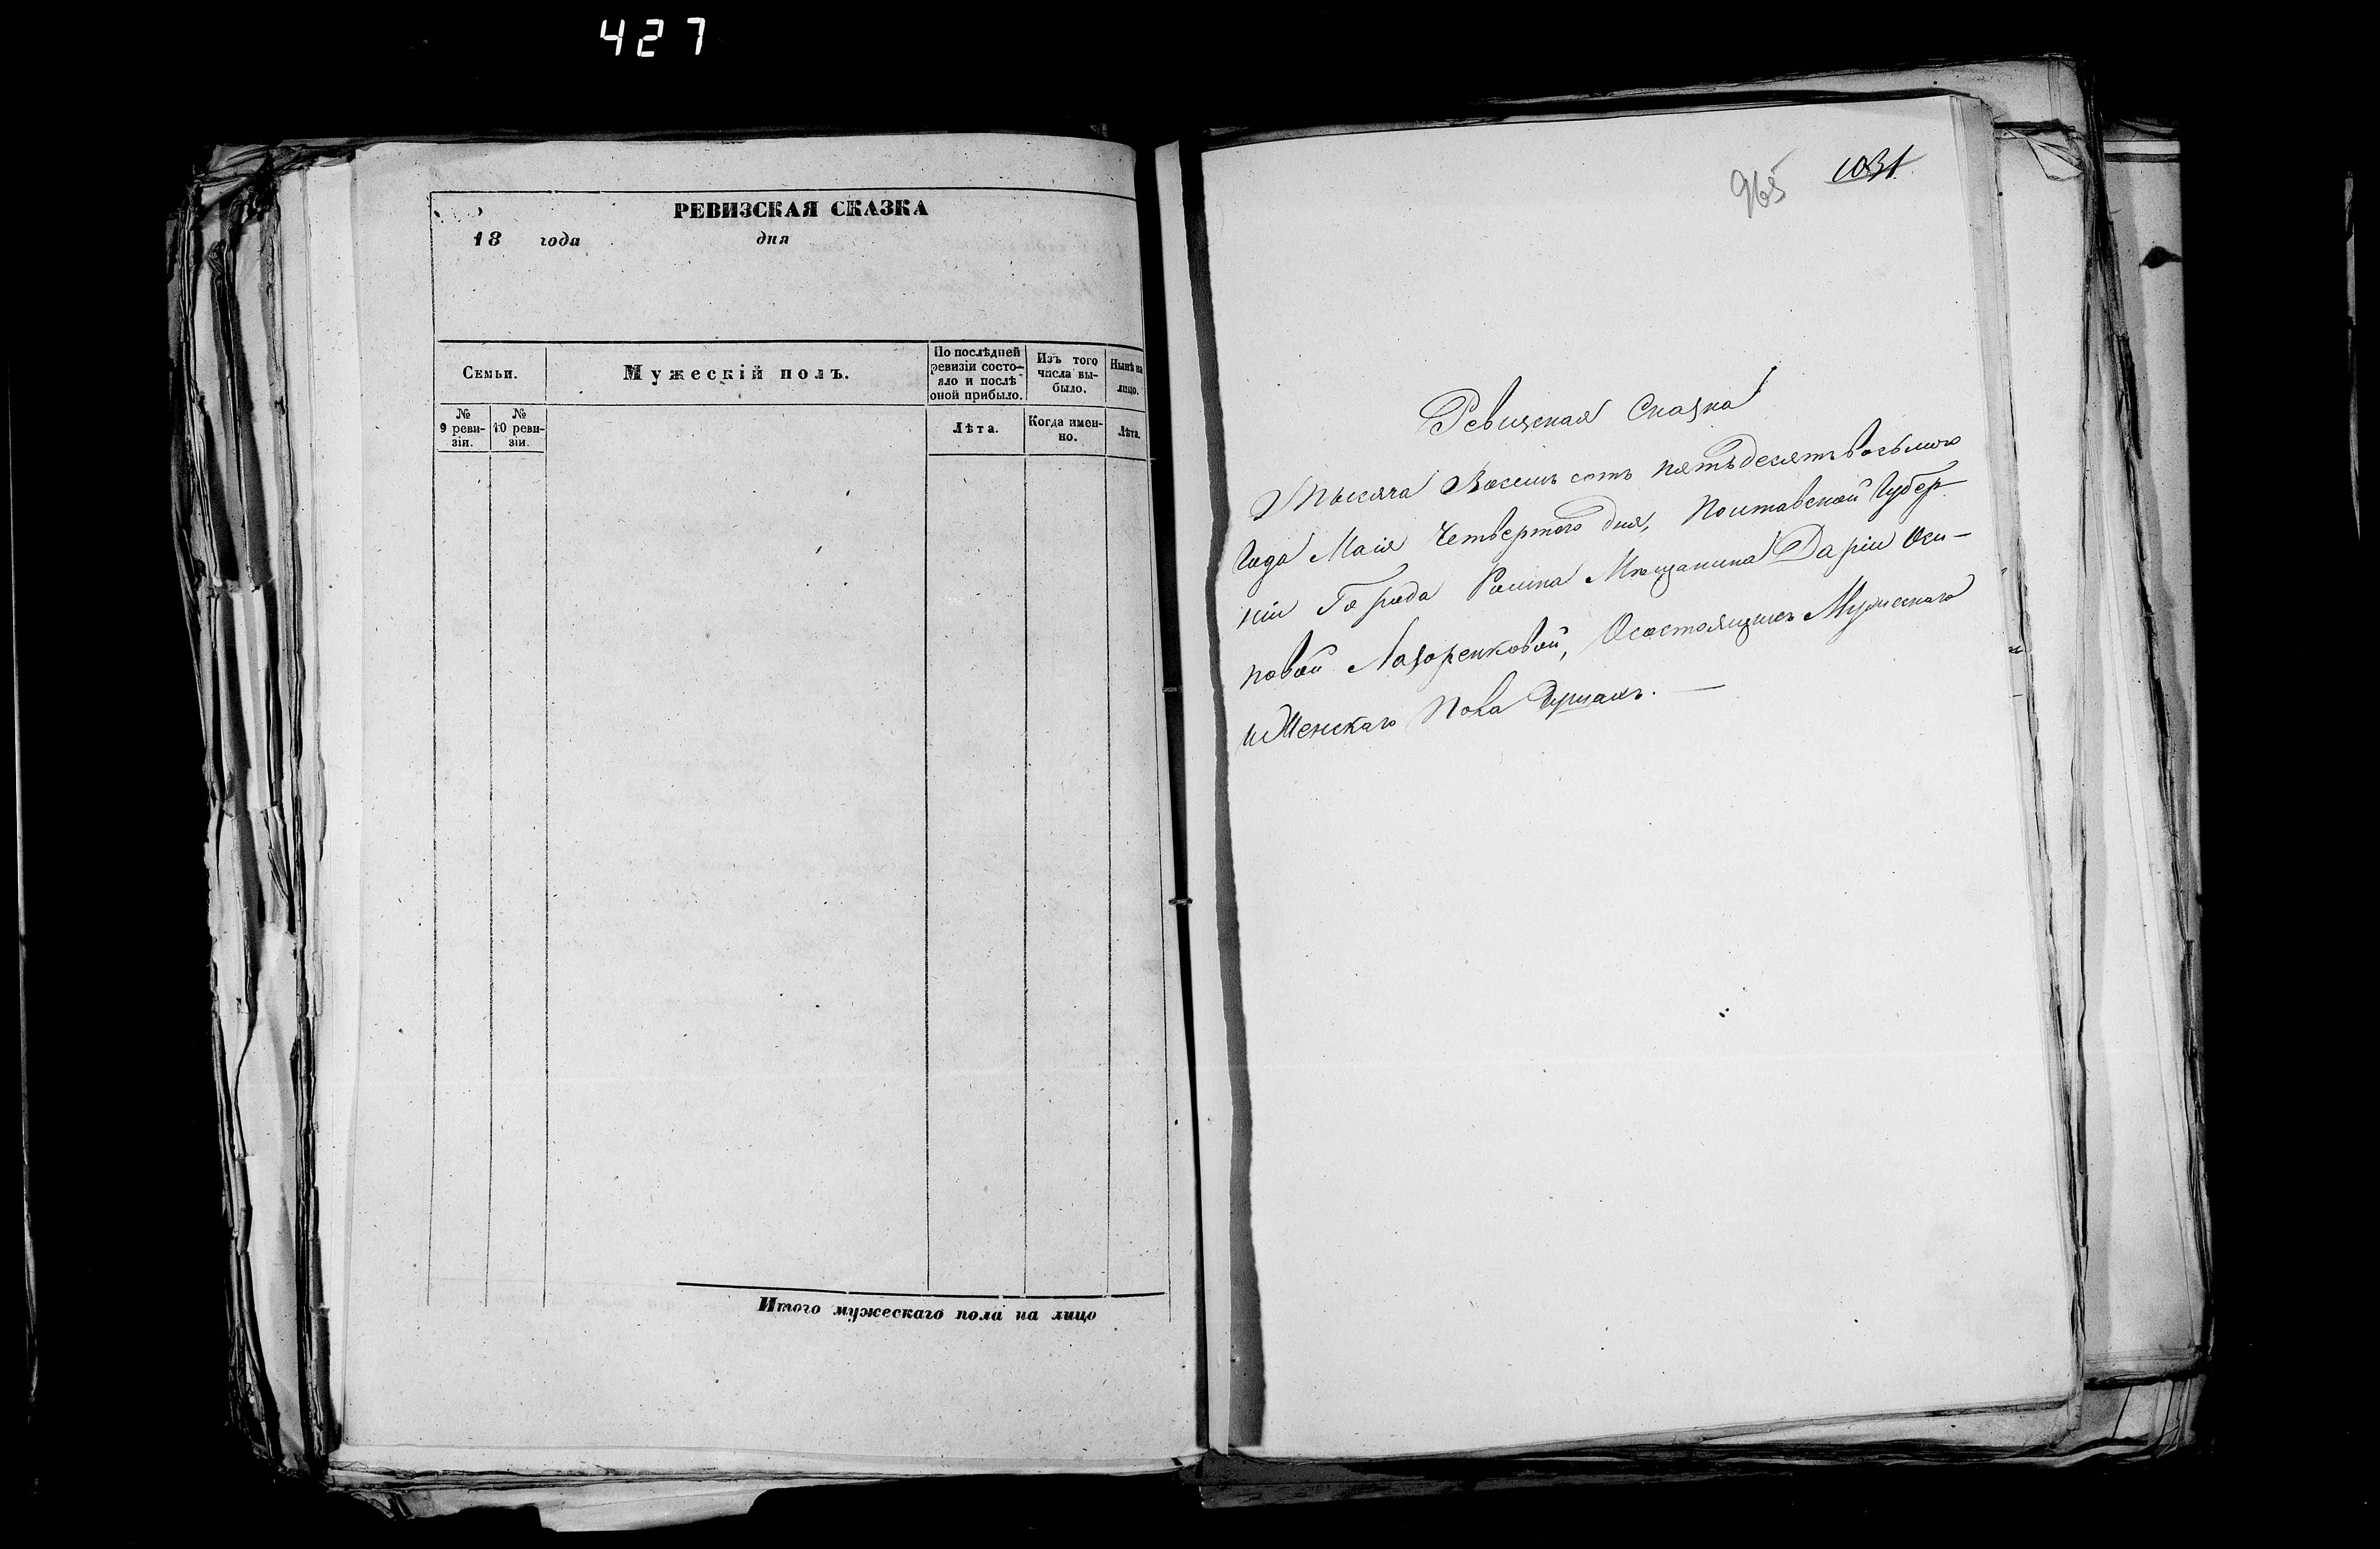 427
РЕВИЗСКАЯ СКАЗКА
18 года дня
Семьи.
Мужескій полъ.
По послѣдней
ревизіи состо-
яло и послѣ
оной прибыло.
Изъ того
числа вы-
было.
Нынѣ на
лицо.
№
9 реви-
зіи.
№
10 реви-
зіи.
Лѣта.
Когда имен-
но.
Лѣта.
Итого мужескаго пола на лицо
965 1031
Ревизская Сказка
Тысяча Восемь сотъ пятьдесятъ восьмого
Года Маія Четвертого дня, Полтавской Губер-
ніи Города Ромна Мѣщанина Даріи Оси-
повой Лазоренковой, О состоящихъ Мужескаго
и Женскаго Пола Душахъ. —